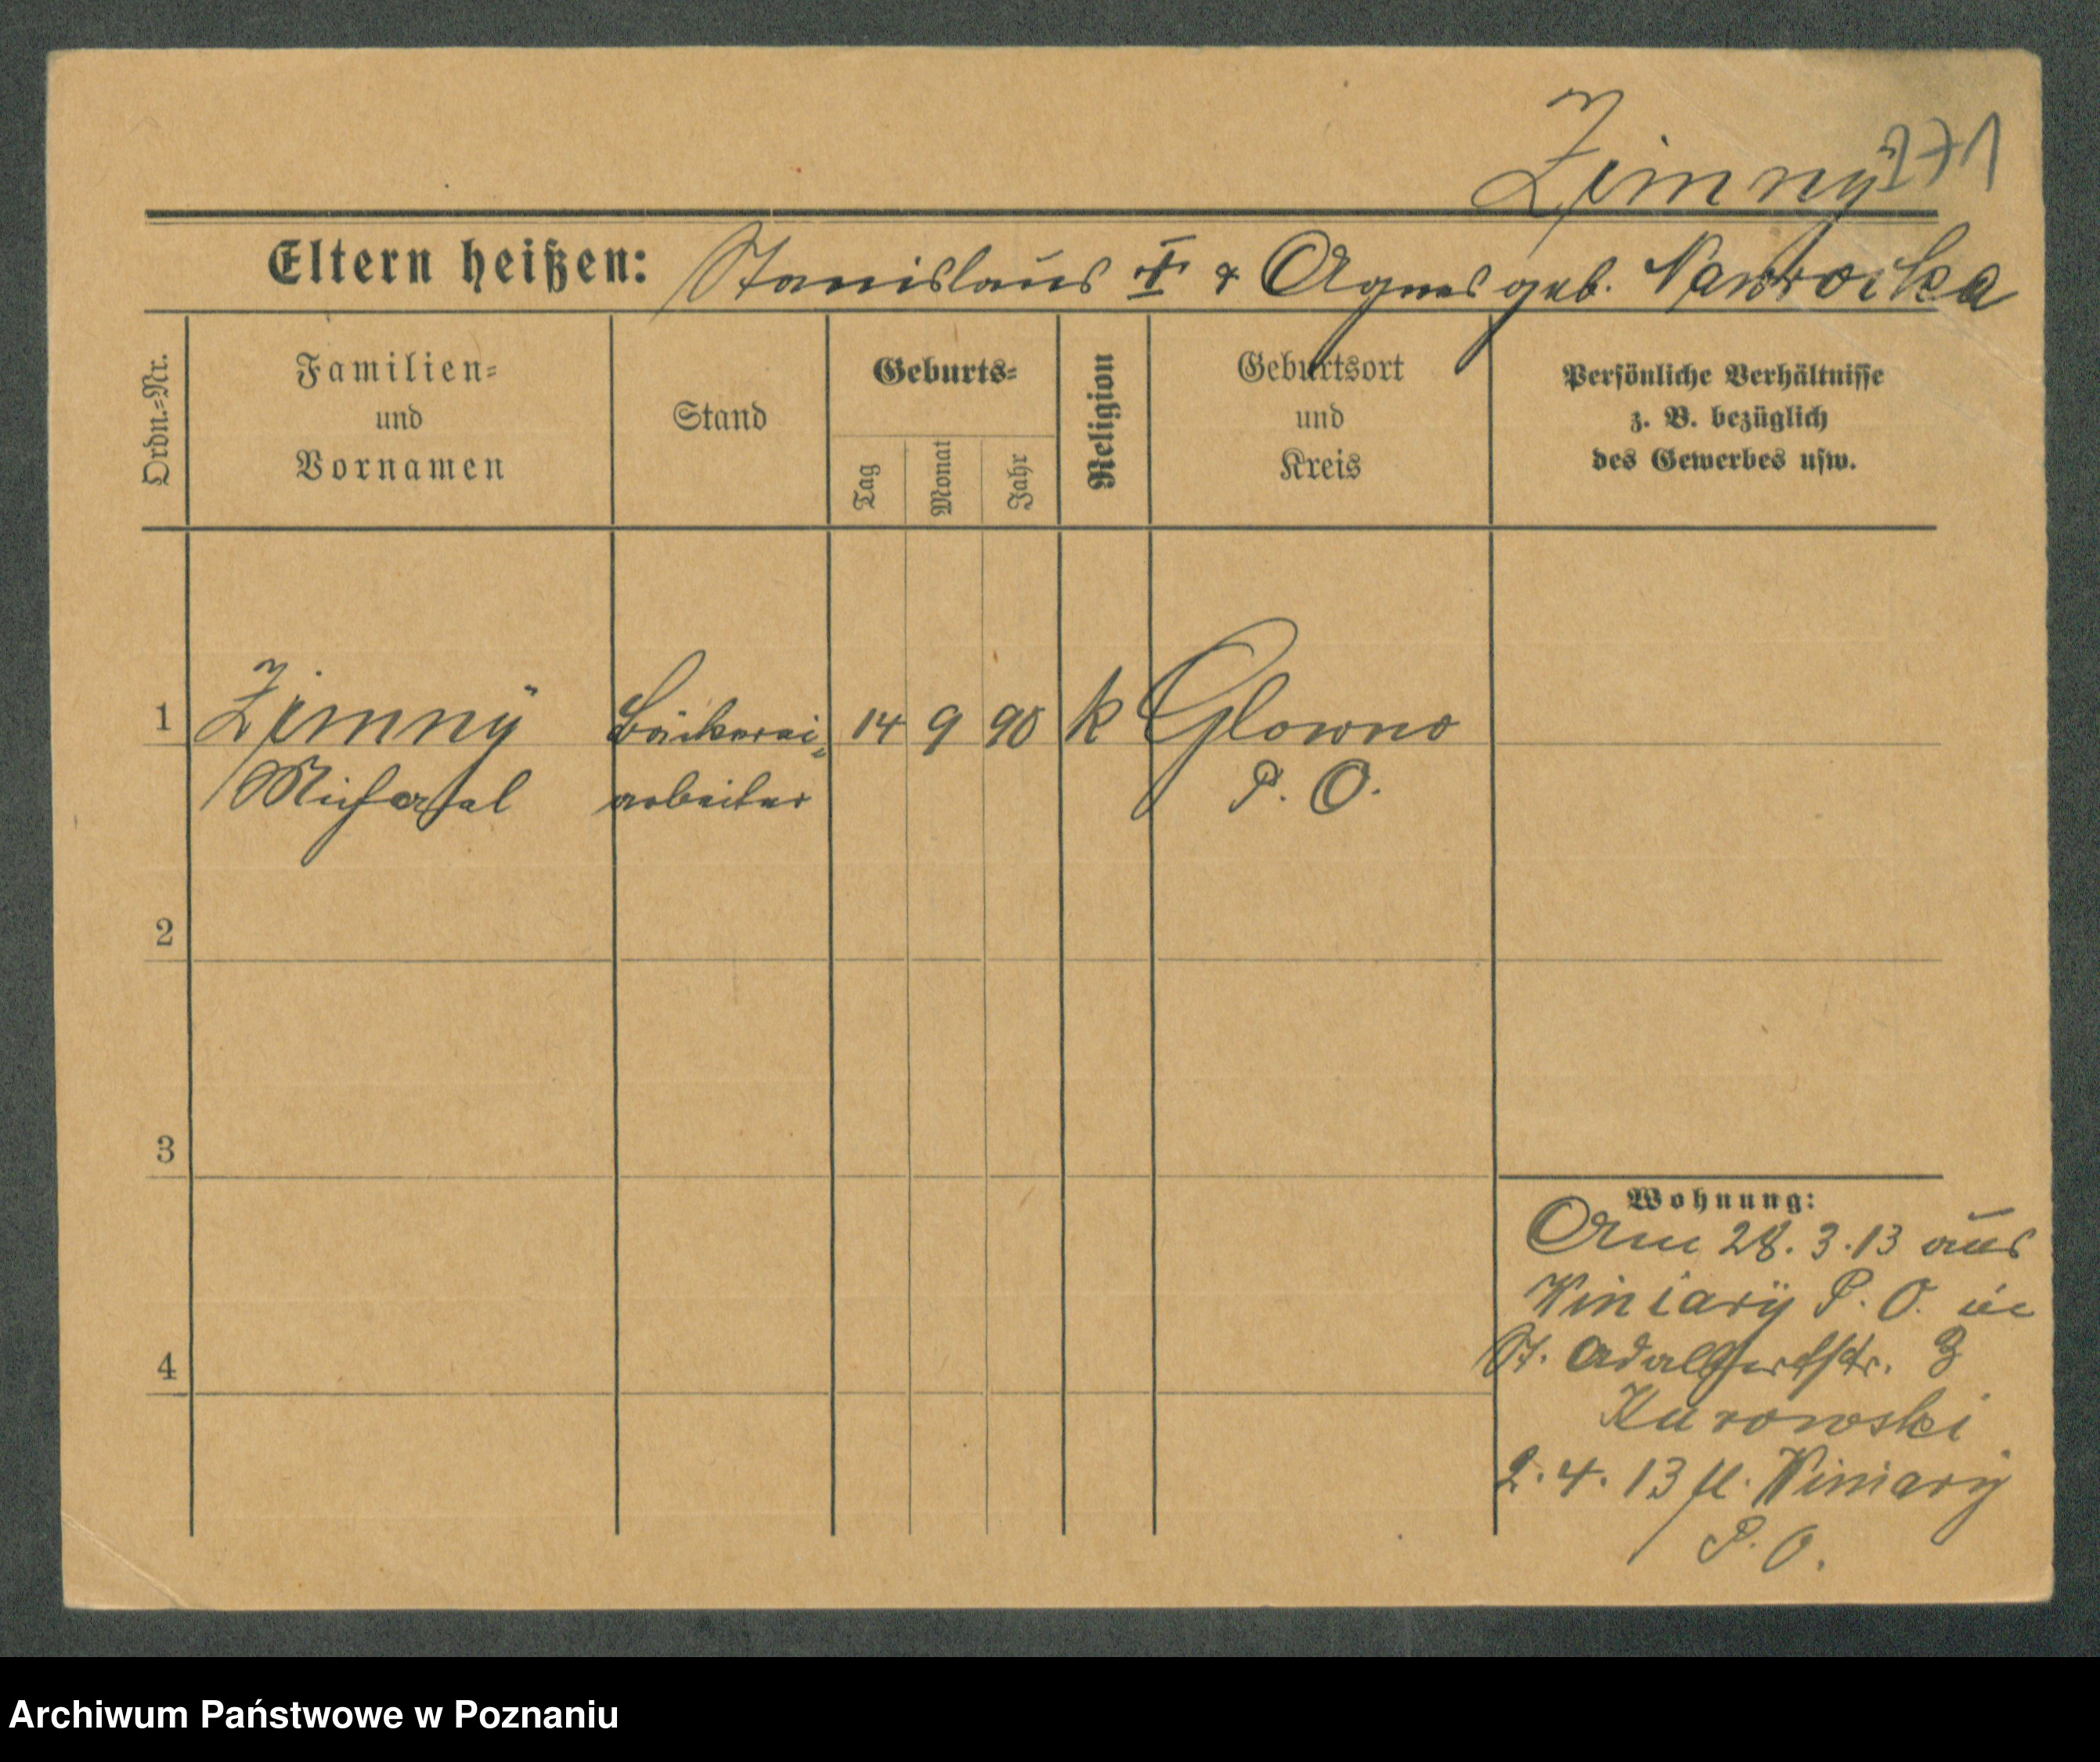 Zimny
271
Eltern heißen: Stanislaus I & Agnes geb. Nawrocka
Ordn.=Nr.
Familien=
und
Vornamen
Stand
Geburts=
Tag
Monat
Jahr
Religion
Geburtsort
und
Kreis
Persönliche Verhältnisse
z. B. bezüglich
des Gewerbes usw.
1 Zimny Bäckerei= 14 9 90 k Glowno
Michael arbeiter P. O.
2
3
4
Wohnung:
Am 28. 3. 13 aus
Winiary P. O. in
St. Adalbertstr. 3
Kurowski
2. 4. 13 Winiary
P. O.
Archiwum Państwowe w Poznaniu